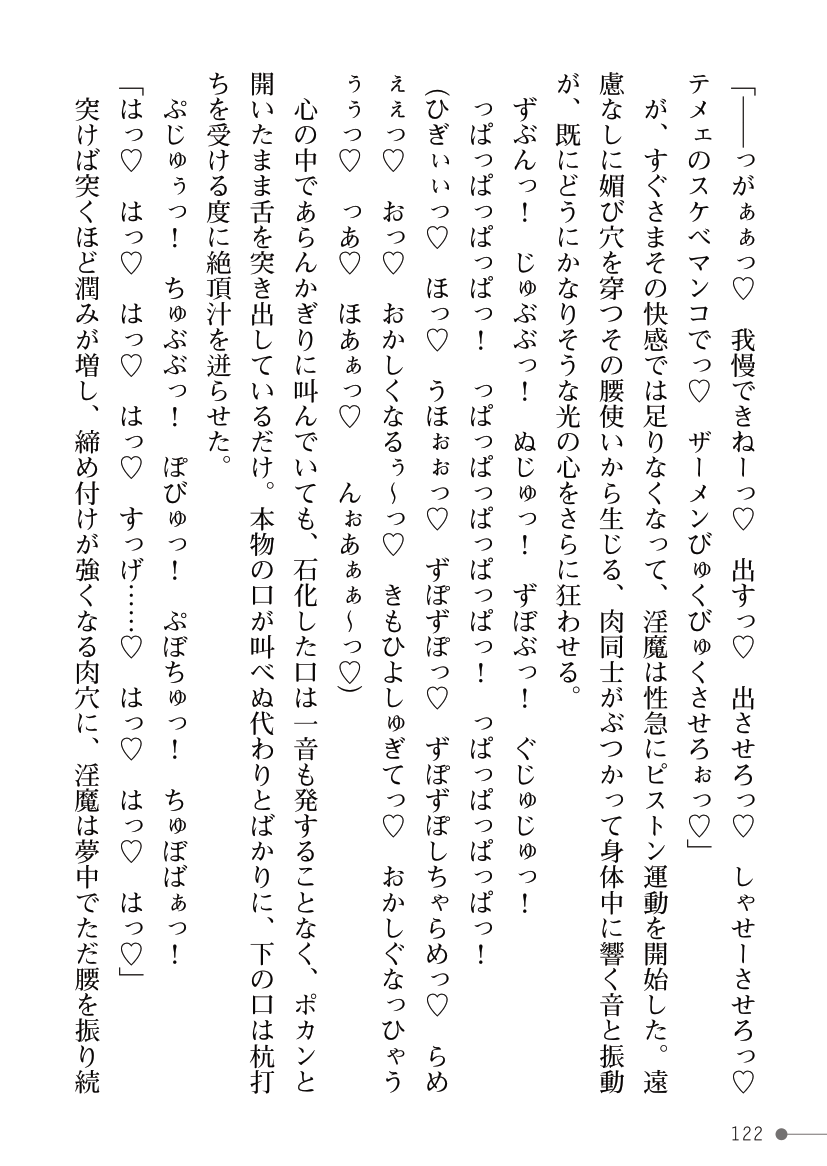 「――っがぁぁっ♡　我慢できねーっ♡　出すっ♡　出させろっ♡　しゃせーさせろっ♡
テメェのスケベマンコでっ♡　ザーメンびゅくびゅくさせろぉっ♡」
　が、すぐさまその快感では足りなくなって、淫魔は性急にピストン運動を開始した。遠
慮なしに媚び穴を穿つその腰使いから生じる、肉同士がぶつかって身体中に響く音と振動
が、既にどうにかなりそうな光の心をさらに狂わせる。
　ずぶんっ！　じゅぶぶっ！　ぬじゅっ！　ずぼぶっ！　ぐじゅじゅっ！
　っぱっぱっぱっぱっ！　っぱっぱっぱっぱっぱっ！　っぱっぱっぱっぱっ！
（ひぎぃぃっ♡　ほっ♡　うほぉぉっ♡　ずぽずぽっ♡　ずぽずぽしちゃらめっ♡　らめ
ぇぇっ♡　おっ♡　おかしくなるぅ～っ♡　きもひよしゅぎてっ♡　おかしぐなっひゃう
ぅぅっ♡　っあ♡　ほあぁっ♡　　んぉあぁぁ～っ♡）
　心の中であらんかぎりに叫んでいても、石化した口は一音も発することなく、ポカンと
開いたまま舌を突き出しているだけ。本物の口が叫べぬ代わりとばかりに、下の口は杭打
ちを受ける度に絶頂汁を迸らせた。
　ぷじゅぅっ！　ちゅぶぶっ！　ぽびゅっ！　ぷぼちゅっ！　ちゅぼばぁっ！
「はっ♡　はっ♡　はっ♡　はっ♡　すっげ……♡　はっ♡　はっ♡　はっ♡」
　突けば突くほど潤みが増し、締め付けが強くなる肉穴に、淫魔は夢中でただ腰を振り続
122